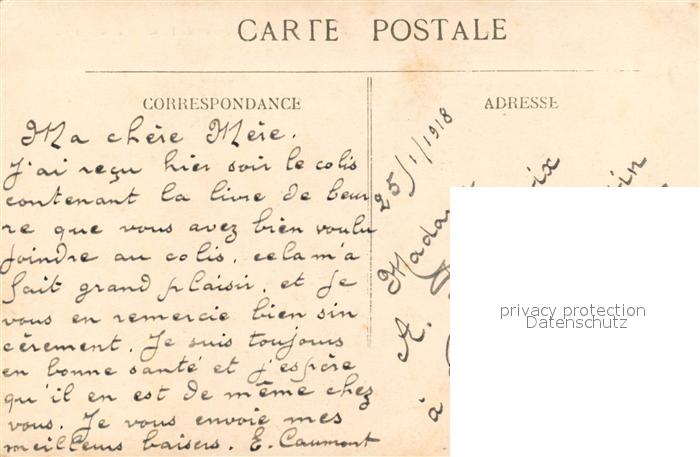 CARTE POSTALE
CORRESPONDANCE
ADRESSE
Ma chère Mère.
J'ai reçu hier soir le colis
contenant la livre de beur
re que vous avez bien voulu
joindre au colis, cela m'a
fait grand plaisir, et je
vous en remercie bien sin
cèrement. Je suis toujours
en bonne santé et j'espère
qu'il en est de même chez
vous. Je vous envoie mes
meilleurs baisers. E. Caumont
25/1/1918
A. Mada
à
privacy protection
Datenschutz